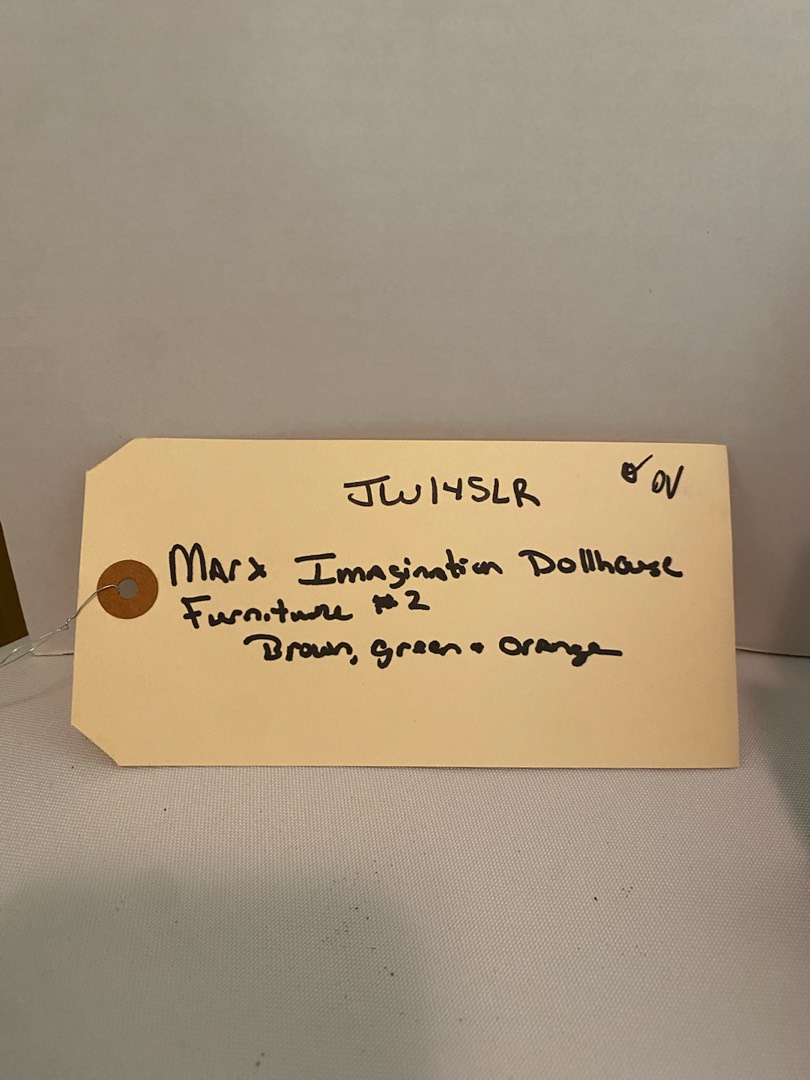 JW145LR
OV
Marx Imagination Dollhouse
Furniture #2
Brown, green & orange